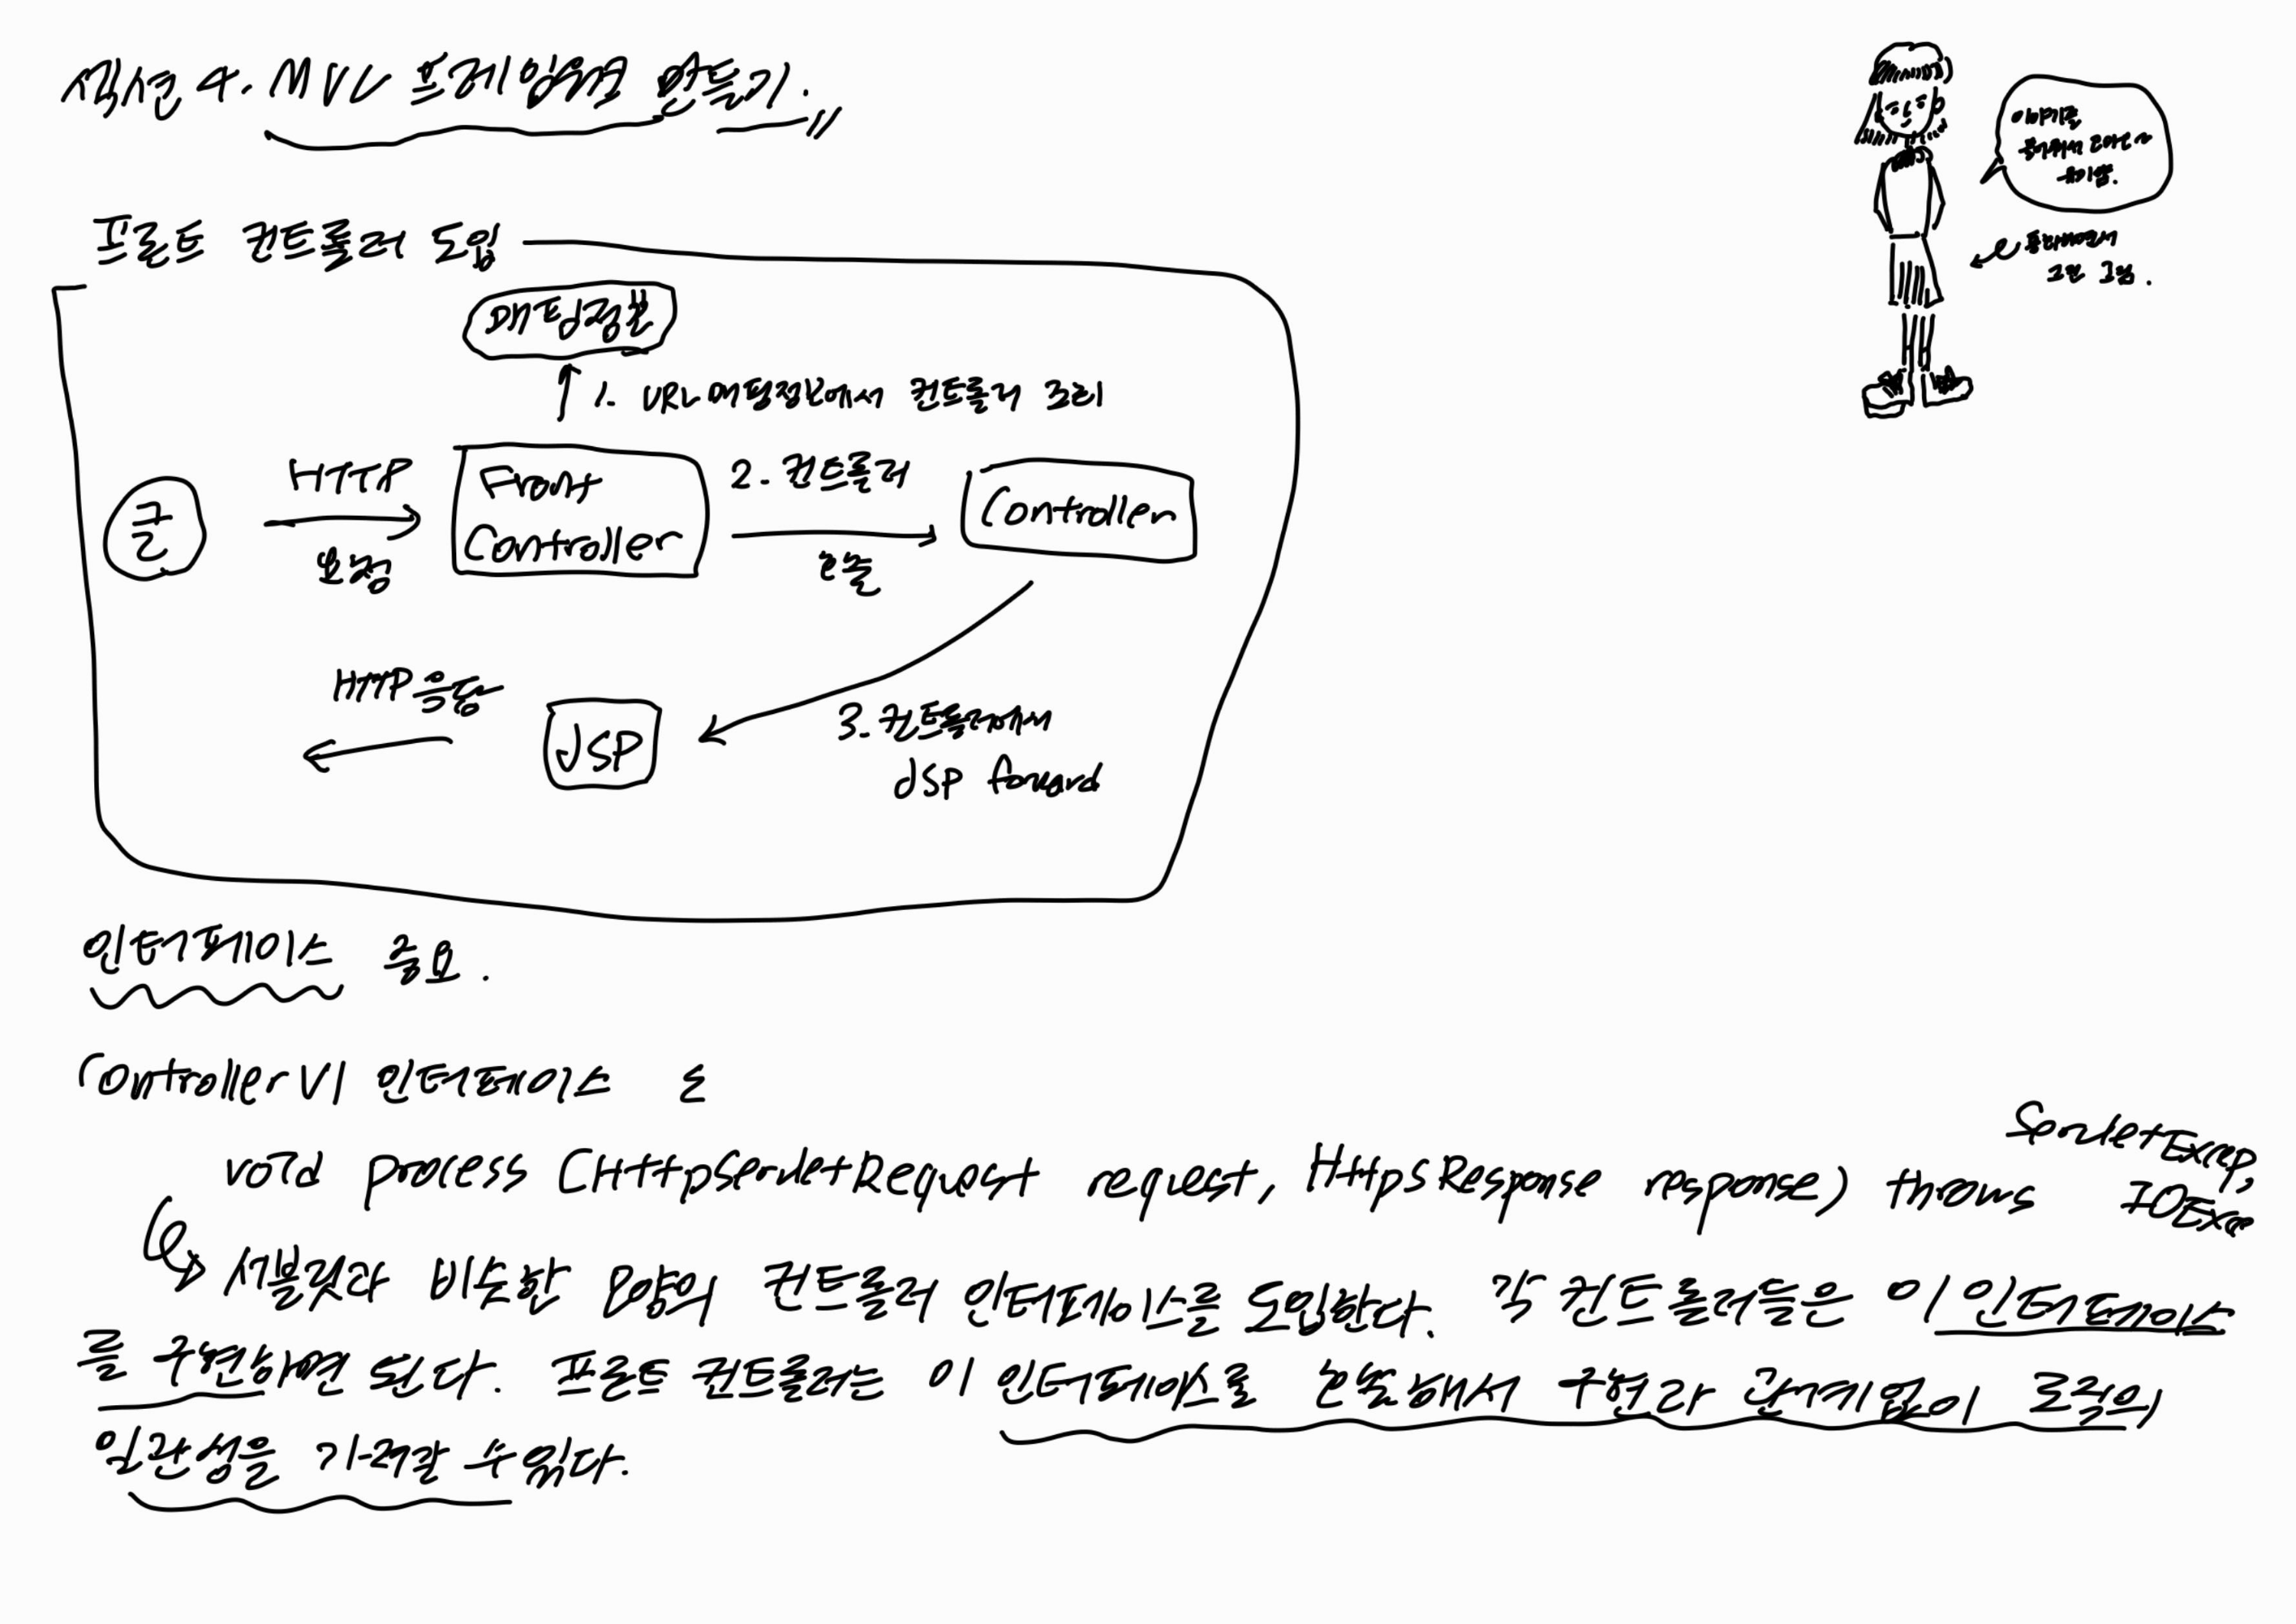 섹션 4. MVC 프레임워크 만들기.
프론트 컨트롤러 도입
매핑정보
1. URL매핑정보에서 컨트롤러 조회
클
HTTP
요청
Front
Controller
2. 컨트롤러
호출
Controller
3. 컨트롤러에서
JSP forward
JSP
HTTP 응답
통화하면서
그린 그림.
인터페이스 중요.
Controller V1 인터페이스 는
void process (HttpServletRequest request, HttpsResponse response) throws ServletExcep,
IOExce
서블릿과 비슷한 모양의 컨트롤러 인터페이스를 도입한다. 각 컨트롤러들은 이 인터페이스
를 구현하면 된다. 프론트 컨트롤러는 이 인터페이스를 호출해서 구현과 관계없이 로직의
일관성을 가져갈 수 있다.